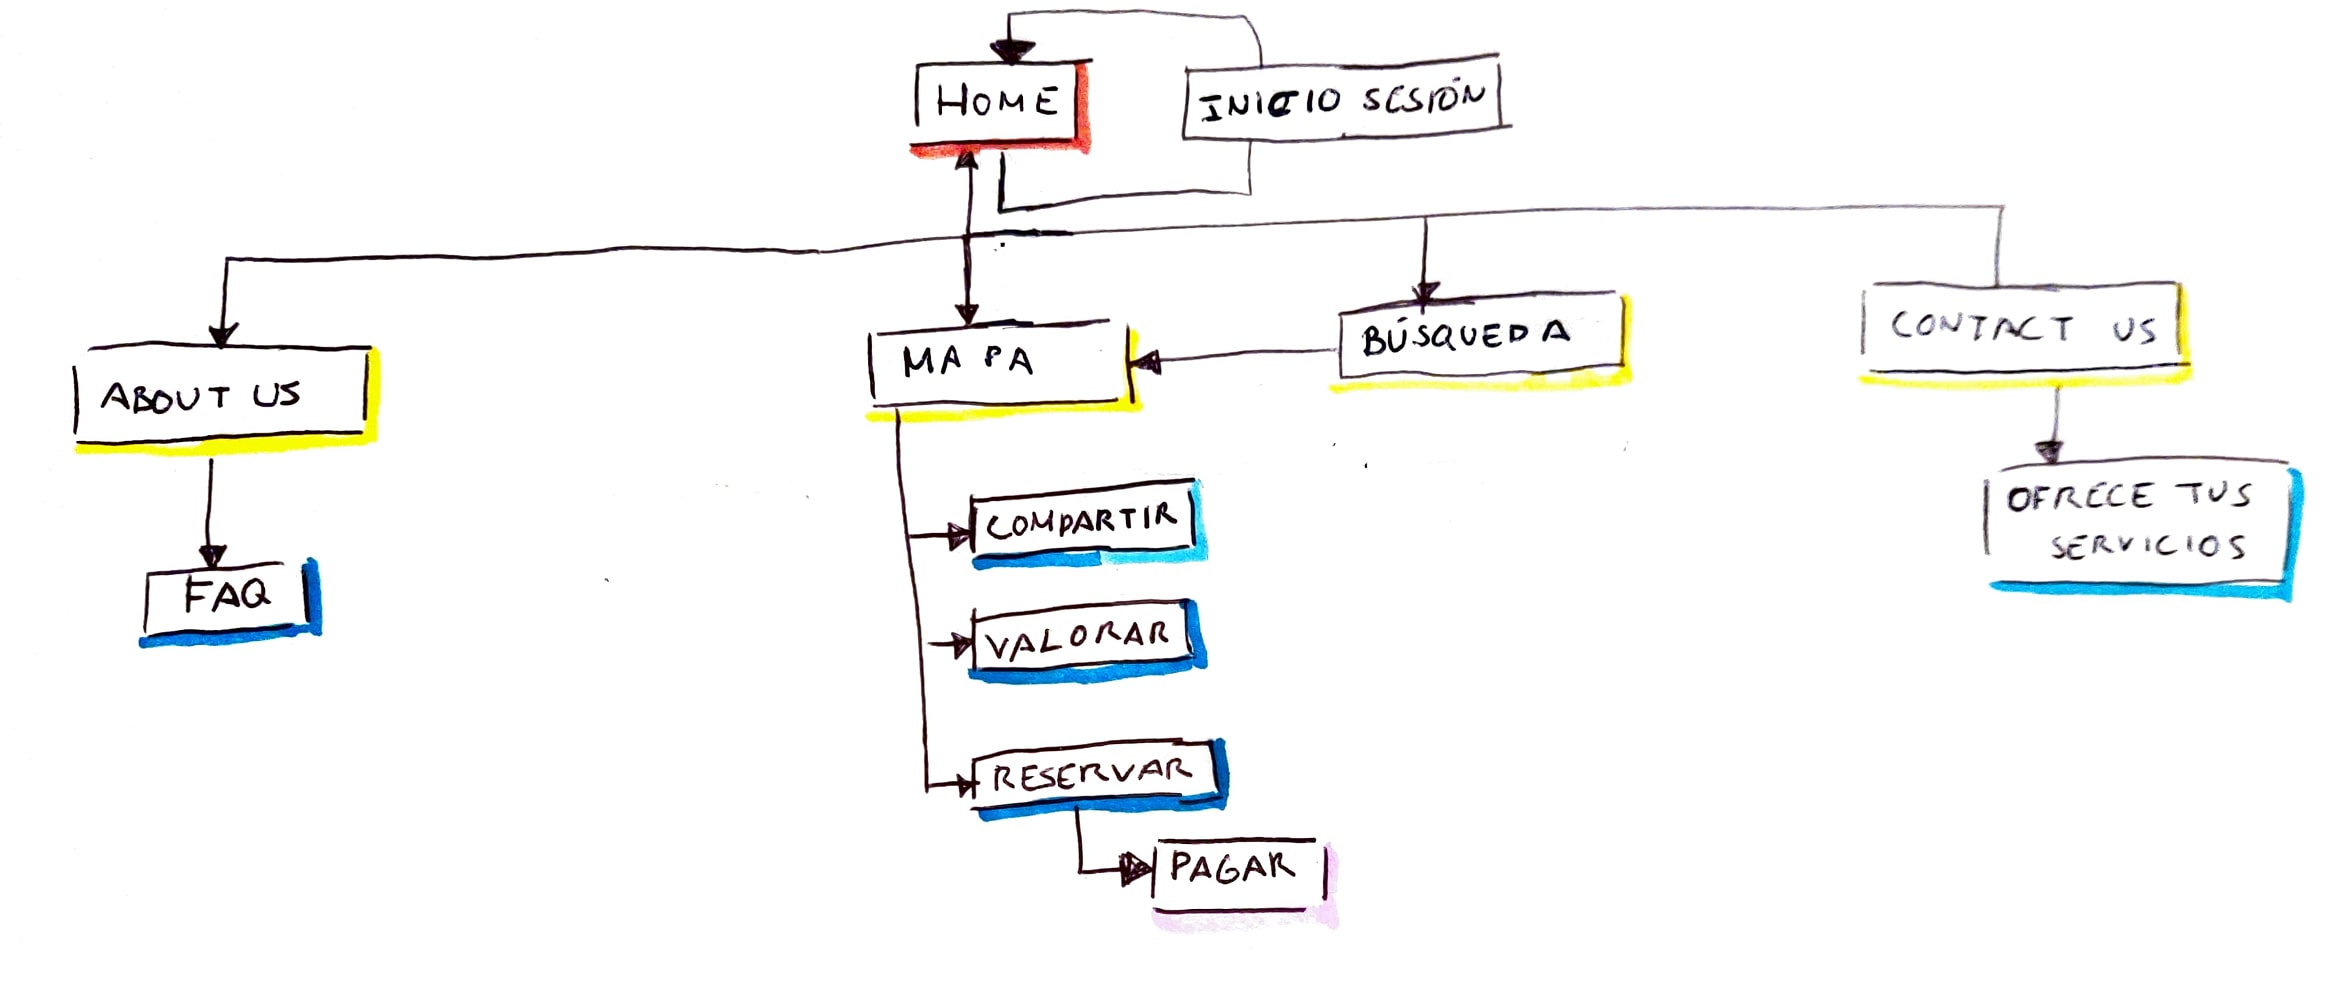 HOME
INICIO SESIÓN
ABOUT US
MAPA
BÚSQUEDA
CONTACT US
FAQ
COMPARTIR
VALORAR
RESERVAR
PAGAR
OFRECE TUS
SERVICIOS